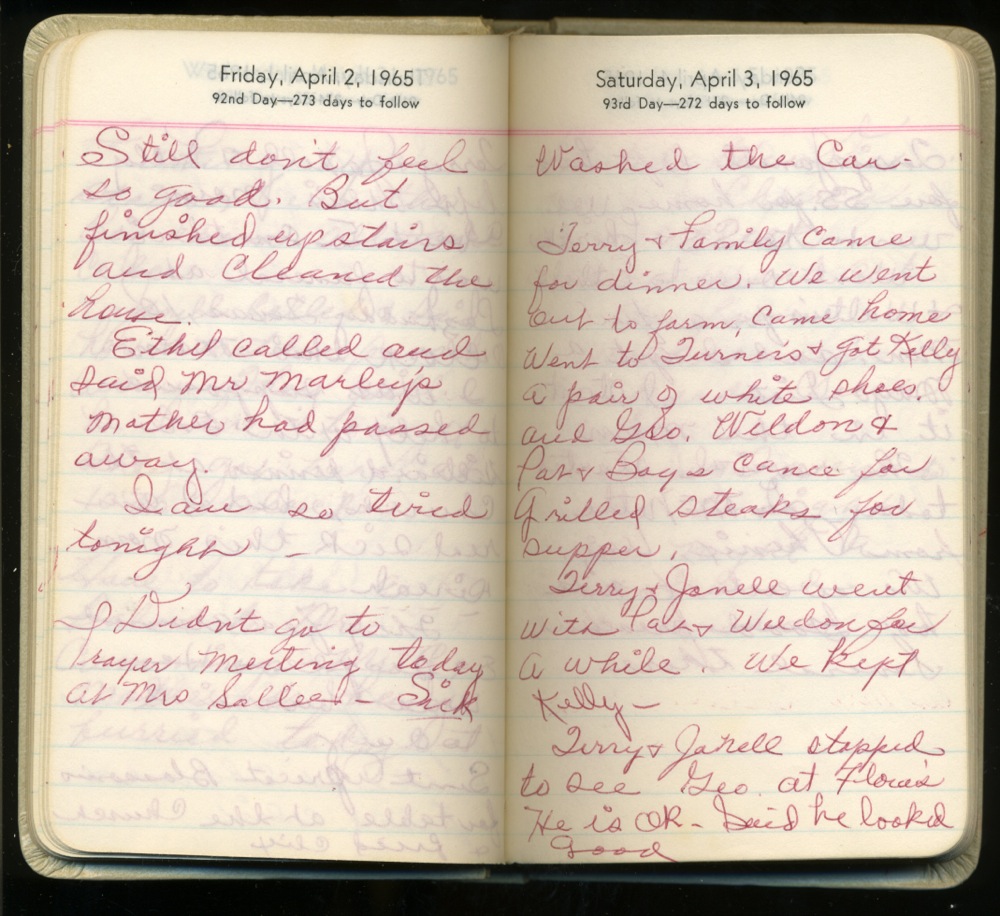 Friday, April 2, 1965
92nd Day—273 days to follow
Still don't feel
so good. But
finished upstairs
and Cleaned the
house.
Ethel called and
said Mr Marley's
mother had passed
away.
I am so tired
tonight –
I Didn't go to
Prayer Meeting today
at Mrs Sallee – Sick
Saturday, April 3, 1965
93rd Day—272 days to follow
Washed the Car-
Terry & Family Came
for dinner. We went
out to farm, Came home
Went to Turner's & Got Kelly
a pair of white shoes.
and Geo. Weldon &
Pat & Boys came for
Grilled steaks for
supper.
Terry & Janell went
with Pat & Weldon for
a while. We Kept
Kelly –
Terry & Janell stopped
to see Geo. at Flora's
He is OK – Said he looked
Good